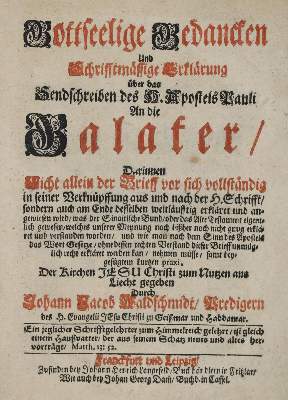 Gottseelige Gedancken
Und
Schrifftmässige Erklärung
über das
Sendschreiben des H. Apostels Pauli
An die
Galater/
Darinnen
Nicht allein der Brieff vor sich vollständig
in seiner Verknüpffung aus und nach der H. Schrifft/
sondern auch am Ende desselben weitläufftig erklärt und an-
gewiesen wird/ was der Sinaitische Bund/ oder das Alte Testament eigent-
lich gewesen/ welches unserer Meynung nach bißher noch nicht gnug erklä-
ret und verstanden worden/ und wie man nach dem Sinn des Apostels
das Wort Gesetze/ ohne dessen rechten Verstand dieser Brieff unmög-
lich recht erkläret werden kan/ nehmen müsse/ samt bey-
gefügten kurtzen praxi,
Der Kirchen JESU Christi zum Nutzen ans
Liecht gegeben
Durch
Johann Jacob Waldschmidt/ Predigern
des H. Evangelii JEsu Christi zu Geißmar und Haddamar.
Ein jeglicher Schrifftgelehrter zum Himmelreich gelehrt/ ist gleich
einem Hautzvatter/ der aus seinem Schatz neues und altes her-
vorträgt/ Matth. 13: 52.
Franckfurt und Leipzig/
Zu finden bey Johann Henrich Lengefeld/ Buchbindern in Fritzlar/
Wie auch bey Johan Georg Dain/ Buchb. in Cassel.